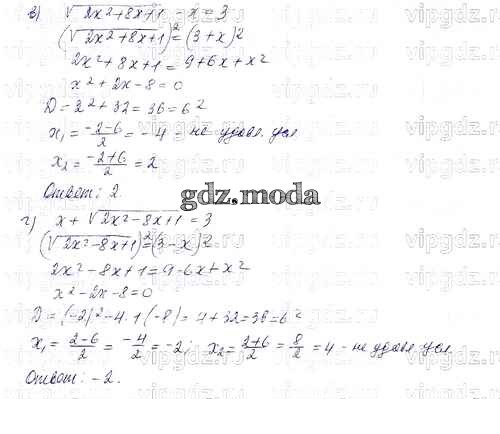 в) √2x²+8x+1 - x = 3
(√2x²+8x+1)² = (3+x)²
2x²+8x+1 = 9+6x+x²
x²+2x-8=0
D=2²+32=36=6²
x₁ = (-2-6)/2 = -4 - не удовл. усл
x₂ = (-2+6)/2 = 2
Ответ: 2.
gdz.moda
г) x + √2x²-8x+1 = 3
(√2x²-8x+1)² = (3-x)²
2x²-8x+1=9-6x+x²
x²-2x-8=0
D=(-2)²-4·1·(-8)=4+32=36=6²
x₁ = (2-6)/2 = -4/2 = -2; x₂ = (2+6)/2 = 8/2 = 4 - не удовл. усл.
Ответ: -2.